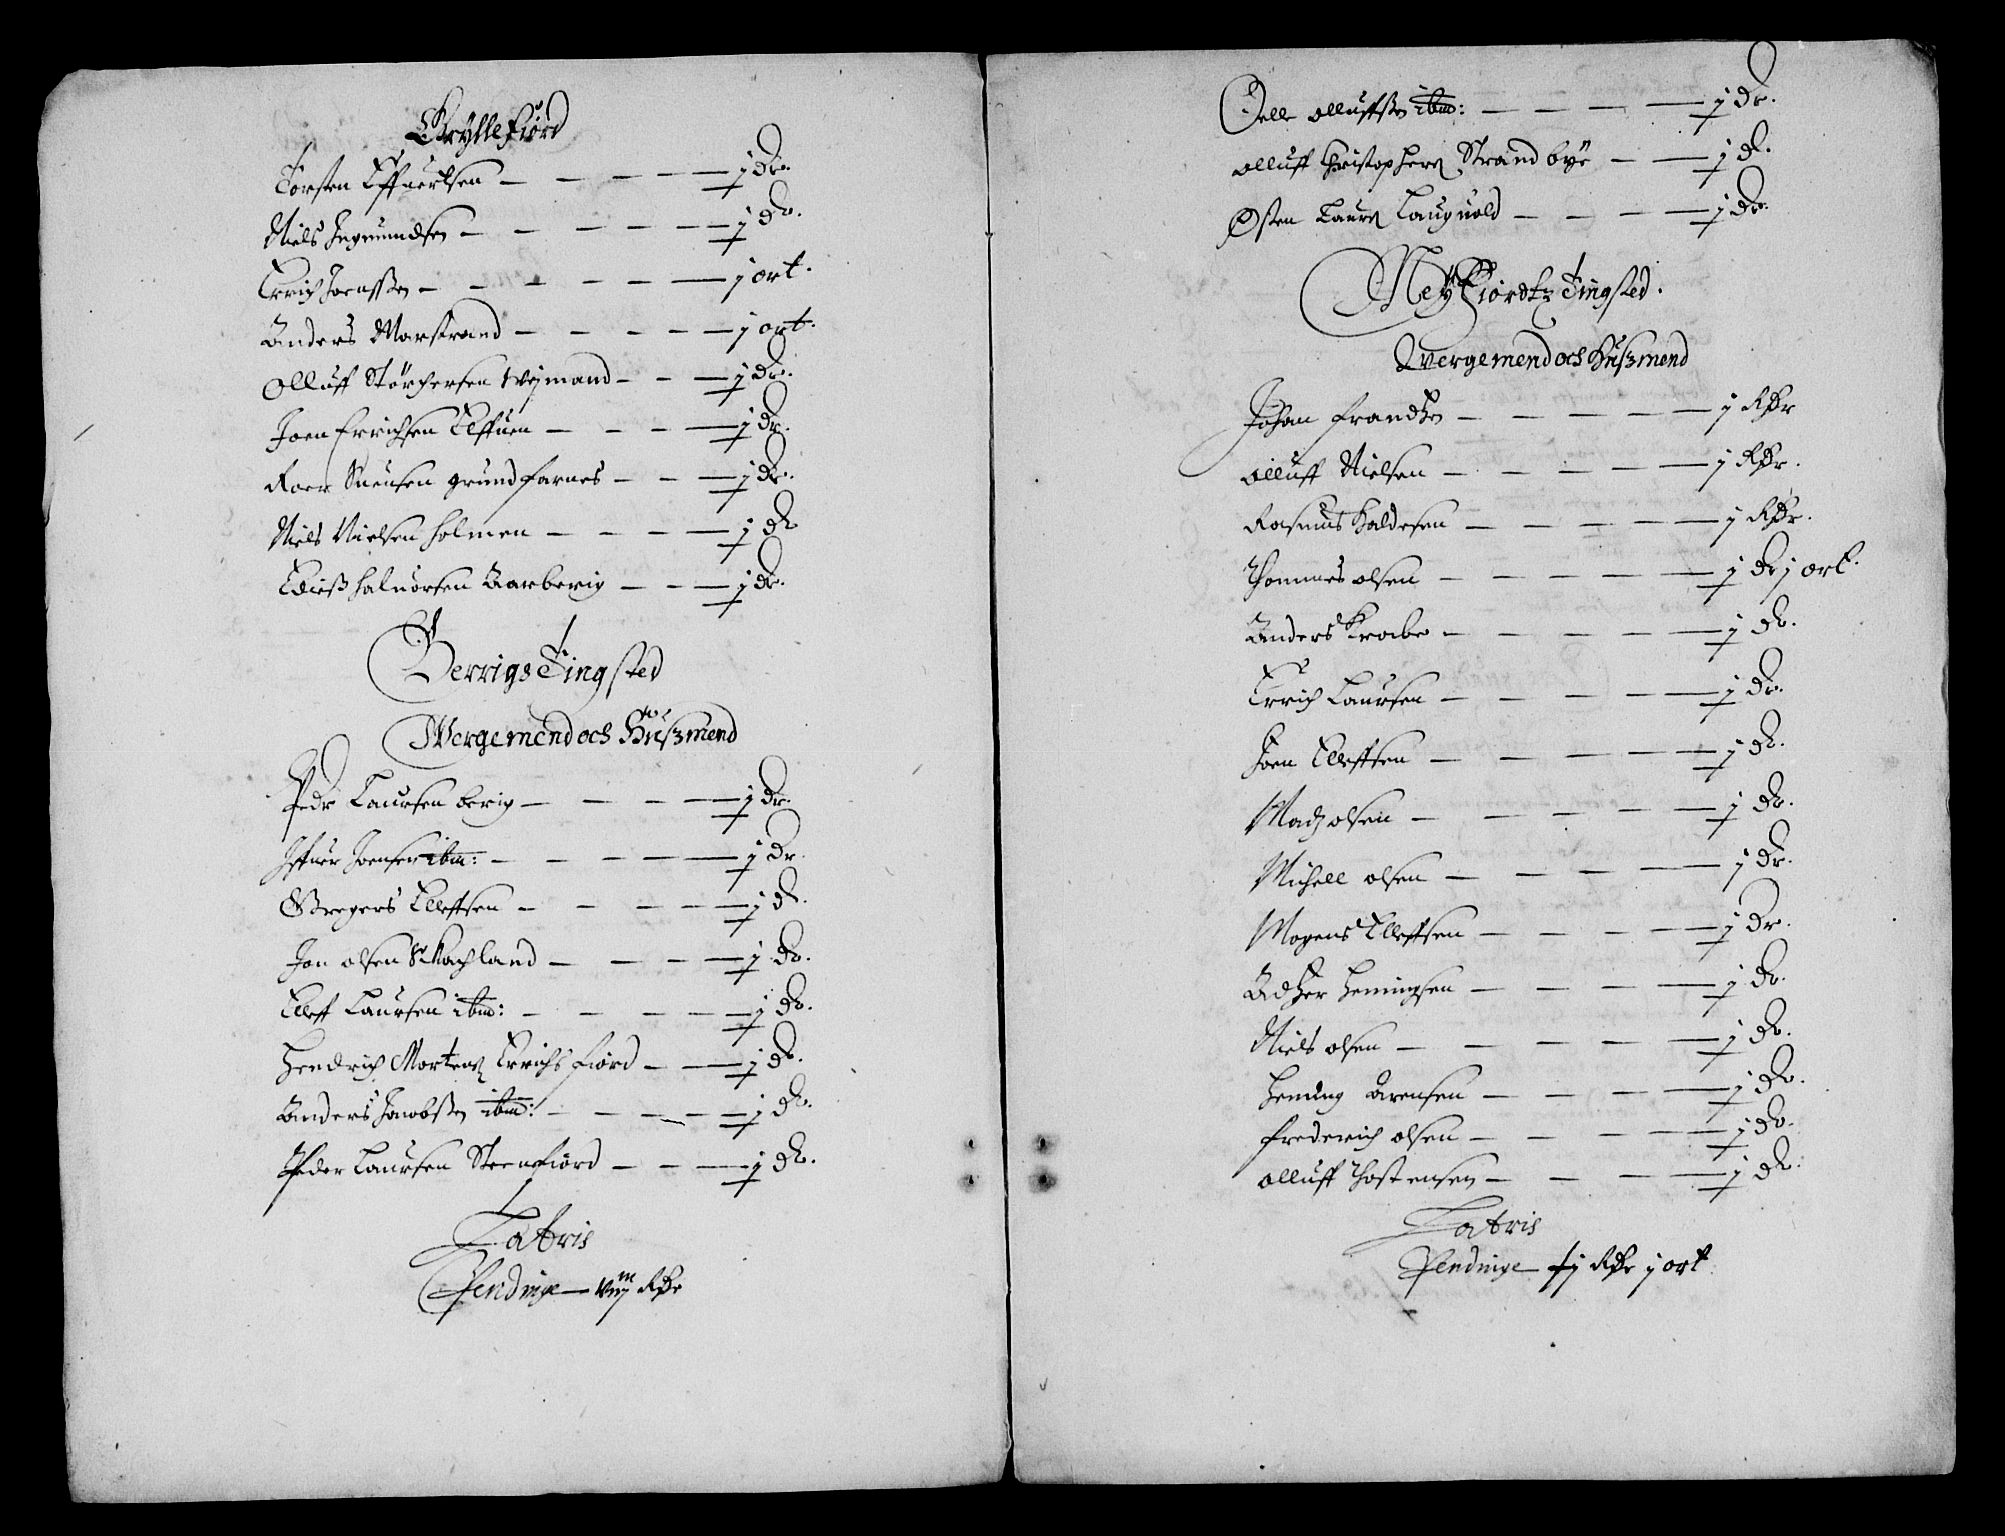 Gryllefiord
Torsten Effuertsen — — — — j dr.
Niels Ingmundsen — — — — j dr.
Erich Joenssen — — — — j ort.
Anders Marstrand — — — — j ort.
Olluff Størchersen Weymand — — — j dr.
Joen Errichsen Elffuen — — — j dr.
Roer Suensen grundfarnes — — — j dr.
Niels Nielsen holmen — — — — j dr
Ediess haluorsen Aarberig — — — j dr.
Berrigs Tingsted
Wergemend och Hussmend
Pedr Laursen berig — — — — j dr.
Iffuer Joensen ibm: — — — — j dr
Gregers Elleffsen — — — — j dr.
Jon olsen Skachland — — — — j dr.
Elleff Laursen ibm: — — — — j dr.
Hendrich Mortens Errichsfiord — — j dr.
Anders Jacobssen ibm: — — — j dr.
Peder Laursen Steenfiord — — — j dr.
Latris
Pendinge — viij Rdr
Oelle olluffssen ibm: — — — — j dr.
olluff Christophers Strandbye — — j dr.
Østen Laurs Laugvold — — — — j dr.
Meyfiordtz Tingsted.
Wergemend och Hussmend
Johan frandtzen — — — — j Rdr
olluff Nielsen — — — — j Rdr.
Rasmus haldesen — — — — j Rdr.
Thommes olsen — — — — j dr j ort.
Anders Krabe — — — — j dr.
Errich Laursen — — — — j dr.
Joen Elleffsen — — — — j dr.
Madz olsen — — — — j dr.
Michell olsen — — — — j dr.
Mogens Elleffsen — — — — j dr.
Adtzer Hemingsen — — — — j dr.
Niels olsen — — — — j dr.
Heming Arensen — — — — j dr.
frederich olsen — — — — j dr.
olluff Thostensen — — — — j dr.
Latris
Pendinge — xj Rdr j ort